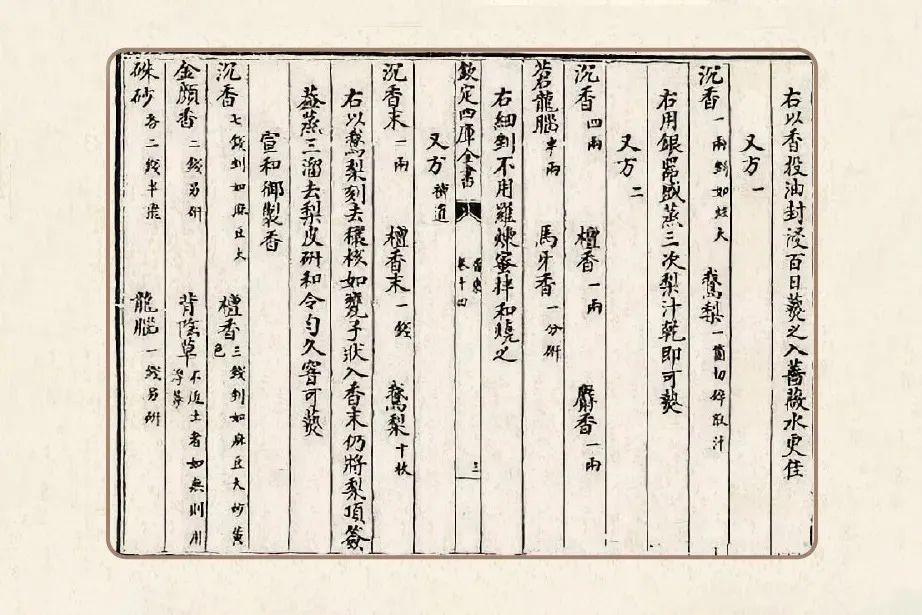 右以香投油封浸百日爇之入薔薇水更佳
又方一
沉香一兩剉如炷大 鵝梨一箇切碎取汁
右用銀器盛蒸三次梨汁乾即可爇
又方二
沉香四兩 檀香一兩 麝香一兩
蒼龍腦半兩 馬牙香一分研
右細剉不用羅煉蜜拌和燒之
欽定四庫全書 香乘 卷十四 三
又方補遺
沉香末一兩 檀香末一錢 鵝梨十枚
右以鵝梨刻去穰核如甕子狀入香末仍將梨頂簽
葢蒸三溜去梨皮研和令勻久窨可爇
宣和御製香
沉香七錢剉如麻豆大 檀香三錢剉如麻豆大炒黃色
金顏香二錢另研 背陰草不近土者如無則用浮萍
硃砂各二錢半飛 龍腦一錢另研